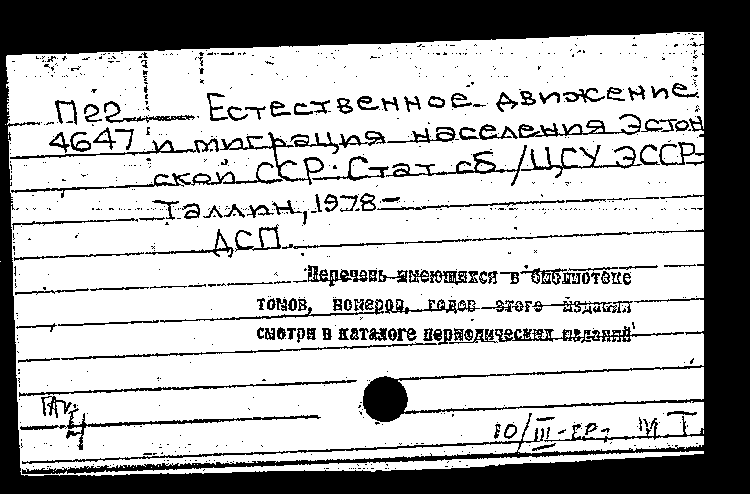 П22 Естественное движение
4647 и миграция населения Эстон
ской ССР: Стат сб./ЦСУ ЭССР-
Таллин, 1978-
ДСП.
Перечень имеющихся в библиотеке
томов, номеров, годов этого издания
смотри в каталоге периодических изданий
10/III-88г. М Т.